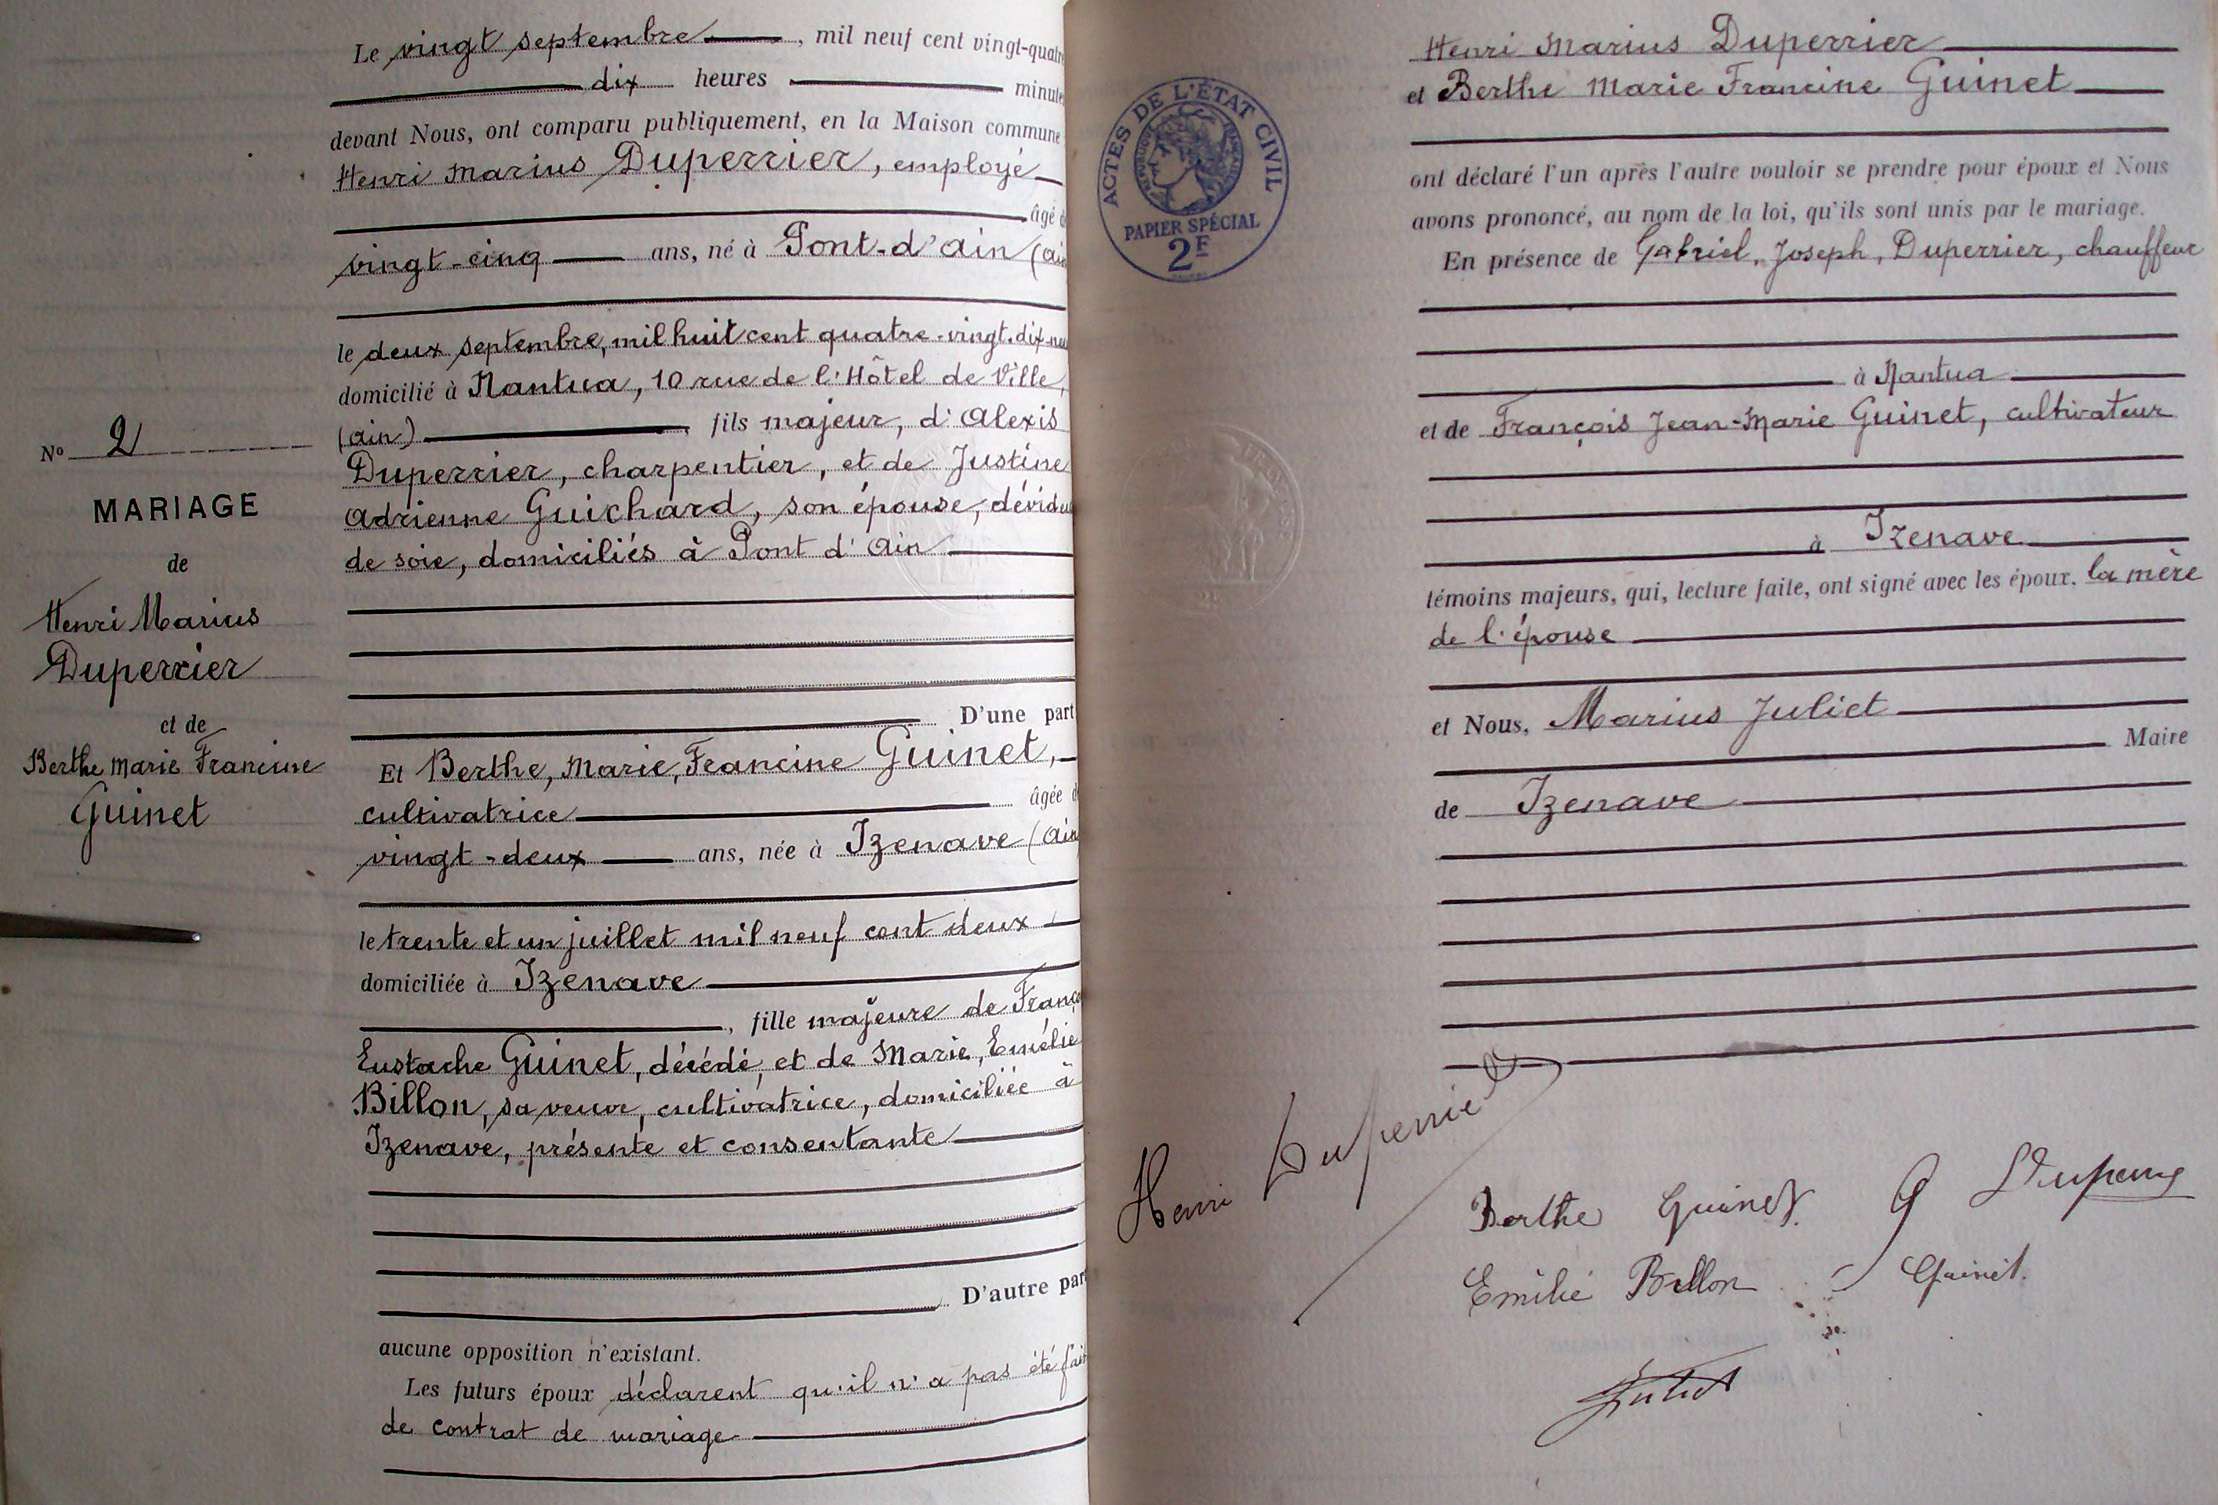 Le vingt septembre, mil neuf cent vingt-quatr
dix heures minute
devant Nous, ont comparu publiquement, en la Maison commune
Henri Marius Duperrier, employé
âgé d
vingt-cinq ans, né à Pont-d'Ain (Ain
le deux septembre, mil huit cent quatre-vingt-dix-neu
domicilié à Nantua, 10 rue de l'Hôtel de Ville,
(Ain) fils majeur, d'Alexis
Duperrier, charpentier, et de Justine
Adrienne Guichard, son épouse, dévideu
de soie, domiciliés à Pont d'Ain
D'une part
Et Berthe, Marie, Francine Guinet,
cultivatrice âgée d
vingt-deux ans, née à Izenave (Ain
le trente et un juillet mil neuf cent deux
domiciliée à Izenave
, fille majeure de Franço
Eustache Guinet, décédé, et de Marie, Emélie
Billon, sa veuve, cultivatrice, domiciliée à
Izenave, présente et consentante
D'autre part
aucune opposition n'existant.
Les futurs époux déclarent qu'il n'a pas été fait
de contrat de mariage
No 2
MARIAGE
de
Henri Marius
Duperrier
et de
Berthe Marie Francine
Guinet
Henri Marius Duperrier
et Berthe Marie Francine Guinet
ont déclaré l'un après l'autre vouloir se prendre pour époux et Nous
avons prononcé, au nom de la loi, qu'ils sont unis par le mariage.
En présence de Gabriel, Joseph, Duperrier, chauffeur
à Nantua
et de François Jean-Marie Guinet, cultivateur
à Izenave
témoins majeurs, qui, lecture faite, ont signé avec les époux, la mère
de l'épouse
et Nous, Marius Juliet
Maire
de Izenave
ACTES DE L'ÉTAT CIVIL
RÉPUBLIQUE FRANÇAISE
PAPIER SPÉCIAL
2F
Henri Duperrier
Berthe Guinet G Duperrier
Emélie Billon Guinet
Juliet